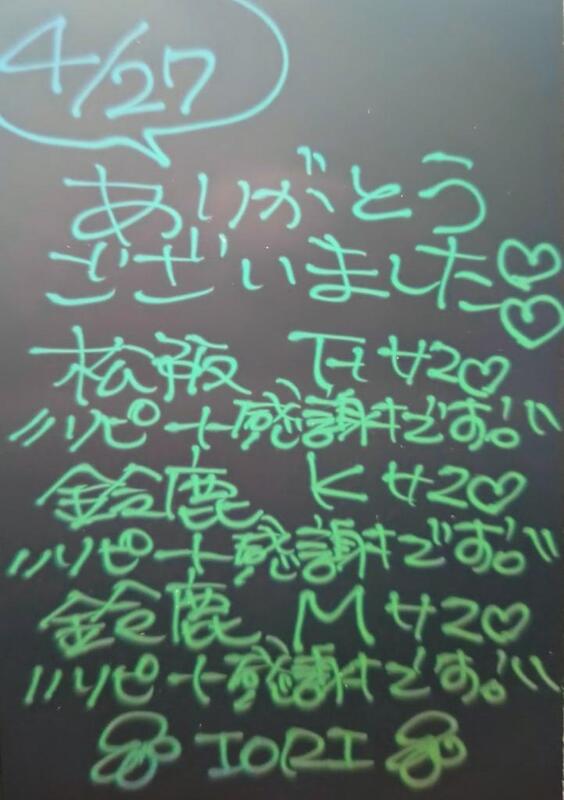 4/27
ありがとう
ございました♡♡
松阪 Tサン♡
〃リピート感謝です!〃
鈴鹿 Kサン♡
〃リピート感謝です!〃
鈴鹿 Mサン♡
〃リピート感謝です!〃
IORI